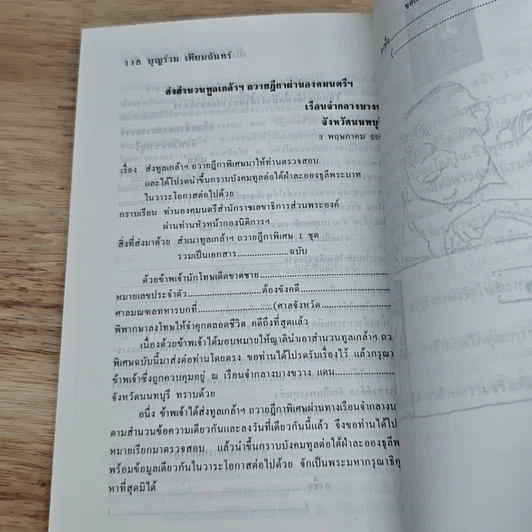 ๖๖๘ บุญร่วม เทียมจันทร์
ส่งสำนวนทูลเกล้าฯ ถวายฎีกาผ่านองคมนตรีฯ
เรือนจำกลางบาง
จังหวัดนนทบุ
พฤษภาคม
เรื่อง ส่งทูลเกล้าฯ ถวายฎีกาพิเศษมาให้ท่านตรวจสอบ
และได้โปรดนำขึ้นกราบบังคมทูลต่อใต้ฝ่าละอองธุลีพระบาท
ในวาระโอกาสต่อไปด้วย
กราบเรียน ท่านองคมนตรีสำนักราชเลขาธิการส่วนพระองค์
ผ่านท่านหัวหน้ากองนิติการฯ
สิ่งที่ส่งมาด้วย สำเนาทูลเกล้าฯ ถวายฎีกาพิเศษ 1 ชุด
รวมเป็นเอกสาร....................ฉบับ
ด้วยข้าพเจ้านักโทษเด็ดขาดชาย..............................
หมายเลขประจำตัว..............................ต้องขังคดี..............................
ศาลมณฑลทหารบกที่....................(ศาลจังหวัด....................
พิพากษาลงโทษให้จำคุกตลอดชีวิต คดีถึงที่สุดแล้ว
เนื่องด้วยข้าพเจ้าได้มอบหมายให้ญาตินำเอาสำนวนทูลเกล้าฯ ถว
พิเศษฉบับนี้มาส่งต่อท่านโดยตรง ขอท่านได้โปรดรับเรื่องไว้ แล้วกรุณา
ข้าพเจ้าซึ่งถูกควบคุมอยู่ ณ เรือนจำกลางบางขวาง แดน....................
จังหวัดนนทบุรี ทราบด้วย
อนึ่ง ข้าพเจ้าได้ส่งทูลเกล้าฯ ถวายฎีกาพิเศษผ่านทางเรือนจำกลางบา
ตามสำนวนข้อความเดียวกันและลงวันที่เดียวกันนี้แล้ว จึงขอท่านได้โป
หมายเรียกมาตรวจสอบ แล้วนำขึ้นกราบบังคมทูลต่อใต้ฝ่าละอองธุลีพ
พร้อมข้อมูลเดียวกันในวาระโอกาสต่อไปด้วย จักเป็นพระมหากรุณาธิคุ
หาที่สุดมิได้